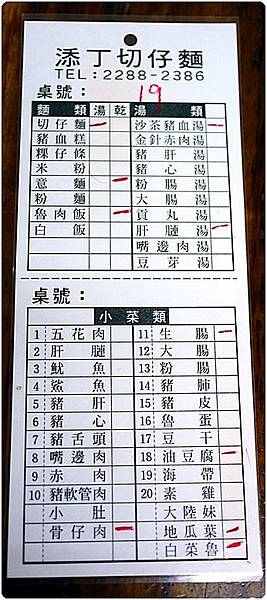 添丁切仔麵
TEL:2288-2386
桌號: 19
麵類 湯 乾 湯類
切仔麵 一 沙茶豬血湯 一
豬血糕 金針赤肉湯
粿仔條 豬肝湯
米粉 豬心湯
意麵 一 粉腸湯
粉麵 大腸湯
魯肉飯 一 貢丸湯
白飯 肝腱湯 一
嘴邊肉湯
豆芽湯
桌號:
小菜類
1 五花肉 11 生腸 一
2 肝腱 12 大腸
3 魷魚 13 粉腸
4 鯊魚 14 豬肺
5 豬肝 15 豬皮
6 豬心 16 魯蛋
7 豬舌頭 17 豆干
8 嘴邊肉 18 油豆腐 一
9 赤肉 19 海帶
10 豬軟管肉 20 素雞
小肚 大陸妹
骨仔肉 一 地瓜葉 一
白菜魯 一